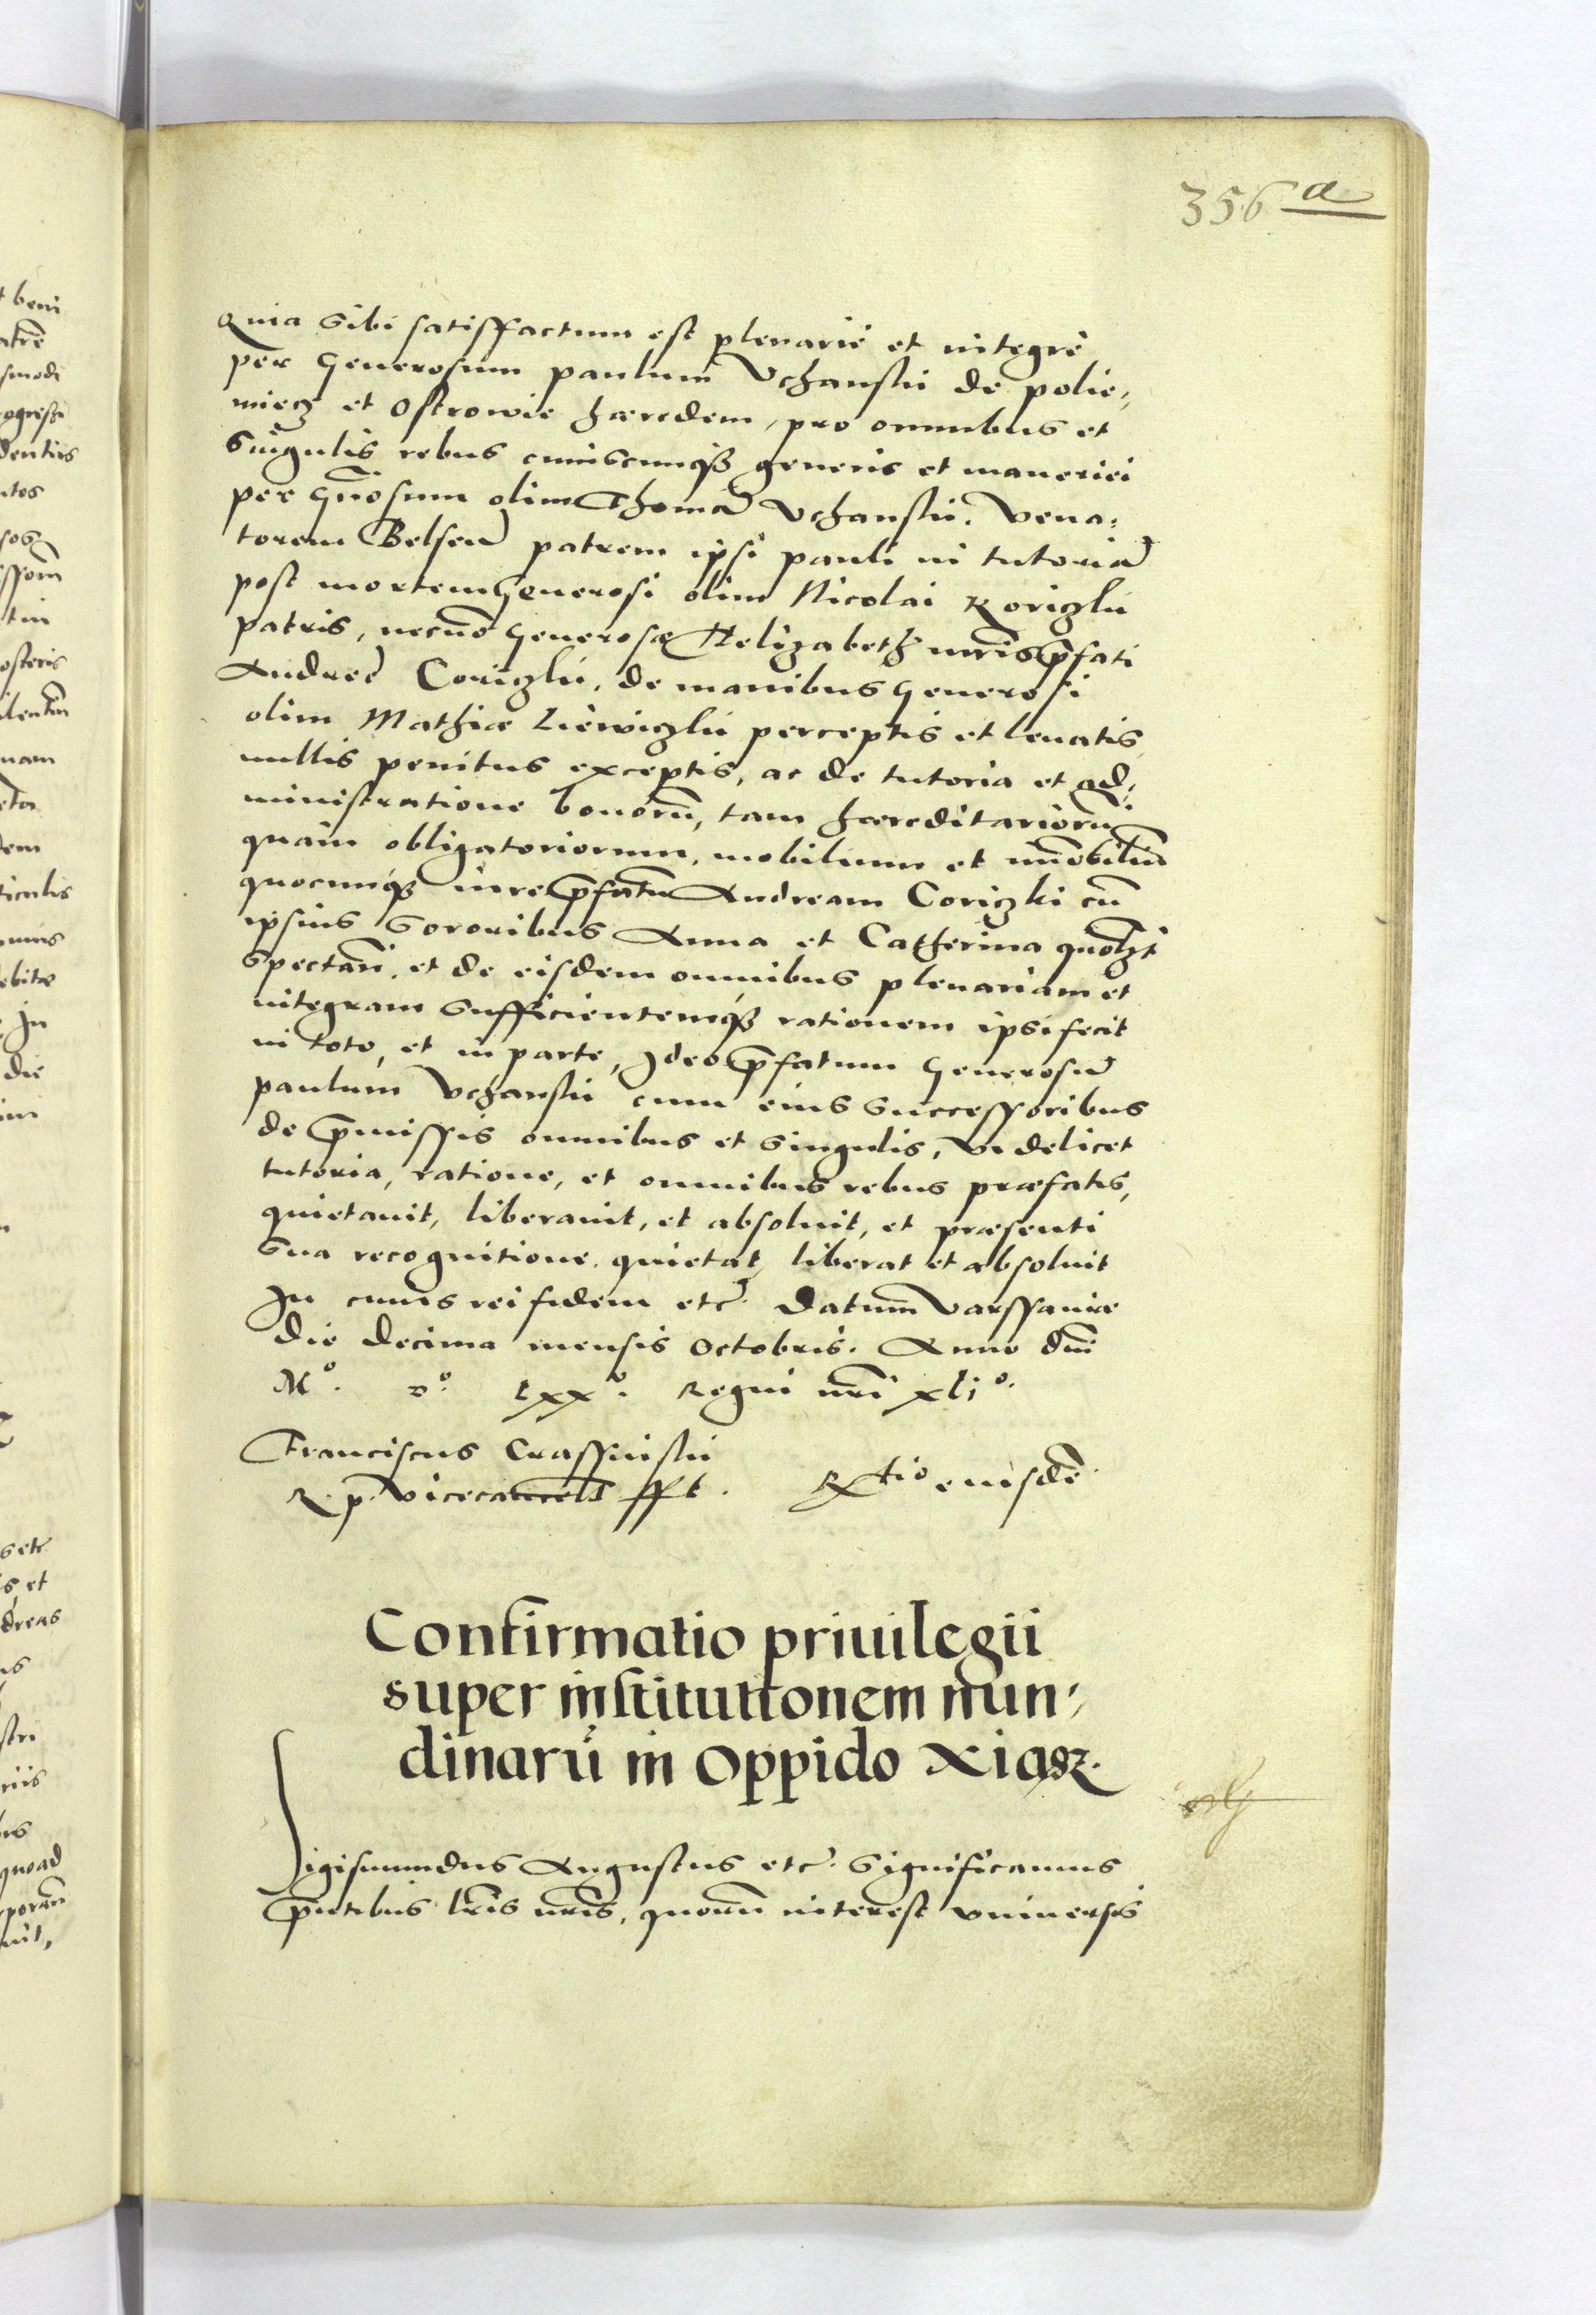 356 a
Quia sibi satisffactum est plenarie et integre
per Generosum paulum Vchanskii de polie,
miecz et Ostrowie hæredem, pro omnibus et
singulis rebus cuiuscunqȝ generis et maneriei
per gn̄osum olim Thomā Vchanskii. Vena,
torem Belsen̄ patrem ipsi pauli in tutoriā
post mortem Generosi olim Nicolai Koriczkii
patris, necnō Generosæ Helizabeth mr̄is p̄fati
Andreę Coriczkii, de manibus Generosi
olim Mathiæ Liewiczkii perceptis et leuatis
nullis penitus exceptis, ac de tutoria et ad,
ministratione bonorū, tam hæreditariorū
quam obligatoriorum, mobilium et im̄obiliū
quocunqȝ iure p̄fatū Andream Coriczki cū
ipsius sororibus Anna et Catherina quōlȝt
spectan̄. et de eisdem omnibus plenariam et
integram sufficientemqȝ rationem ipsi fecit
in toto, et in parte, Ideo p̄fatum Generosū
paulum Vchanskii cum eius successoribus
de p̄missis omnibus et singulis, videlicet
tutoria, ratione, et omnibus rebus præfatis,
quietauit, liberauit, et absoluit, et præsenti
sua recognitione quietat, liberat et absoluit
In cuius rei fidem etc̄. Datum Varssauiæ
die decima mensis Octobris. Anno dn̄i
Mº. Dº. Lxxº. Regni nr̄i xliº.
Franciscus Crassinskii
R. p. Vicecancell̄ sst. R̄tio eiusdē
Confirmatio priuilegii
super institutionem nun,
dinarū in Oppido Xiasz.
Sigismundus Augustus etc̄. Significamus
p̄ntibus lr̄is nr̄is, quorū interest vniuersis